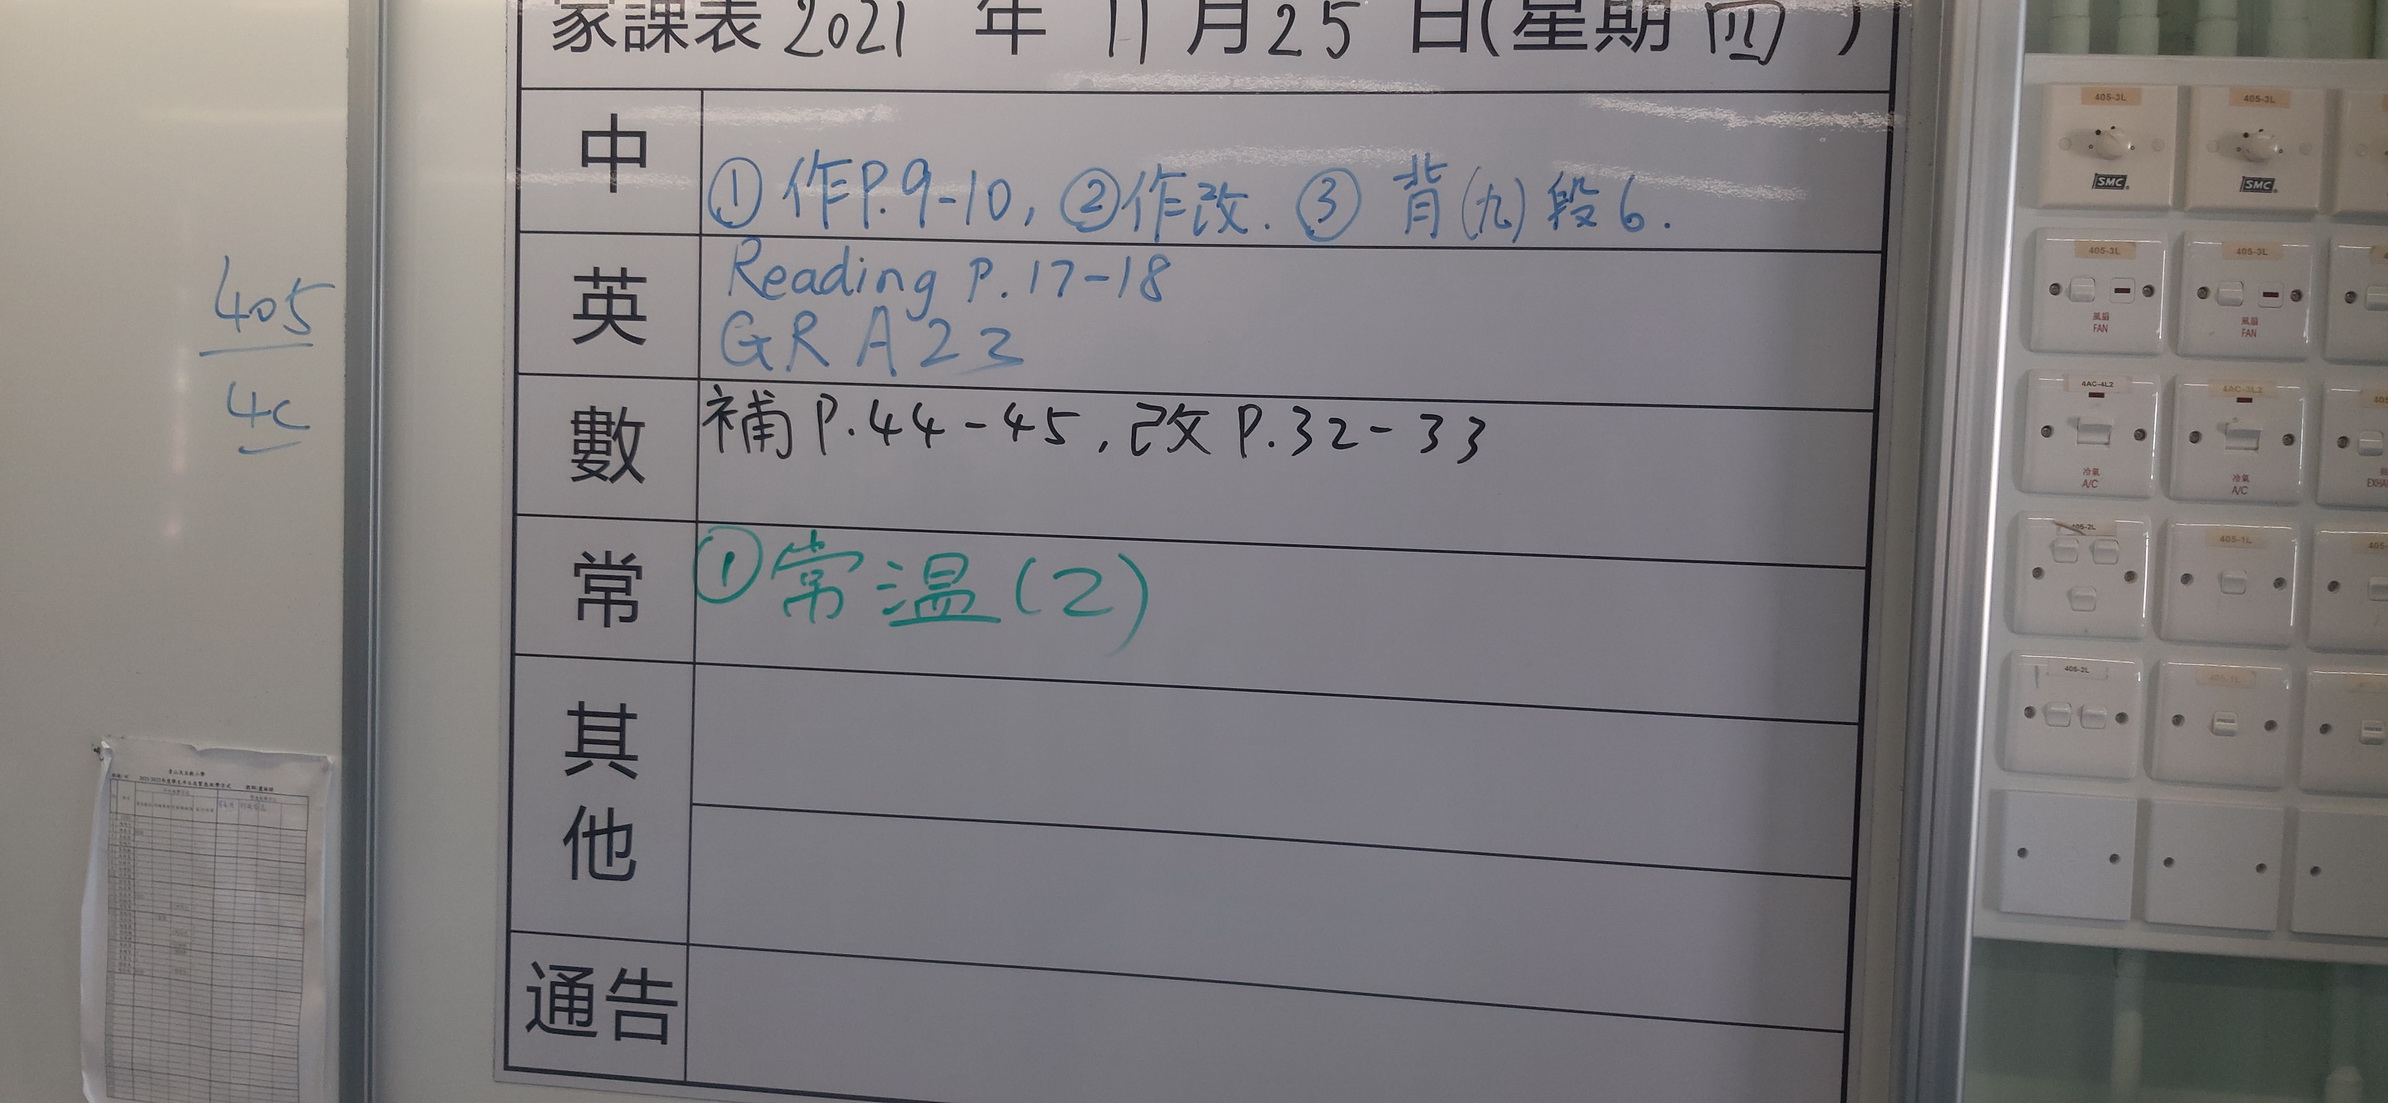 家課表 2021 年 11 月 25 日(星期 四 )
中
①作P.9-10, ②作改. ③ 背(九)段6.
英
Reading P.17-18
GR A23
數
補P.44-45, 改P.32-33
常
①常溫(2)
其他
通告
405
4C
405-3L
405-3L
SMC
SMC
405-3L
405-3L
風扇
FAN
風扇
FAN
4AC-4L2
4AC-3L2
冷氣
A/C
冷氣
A/C
405-2L
405-1L
405-2L
405-1L